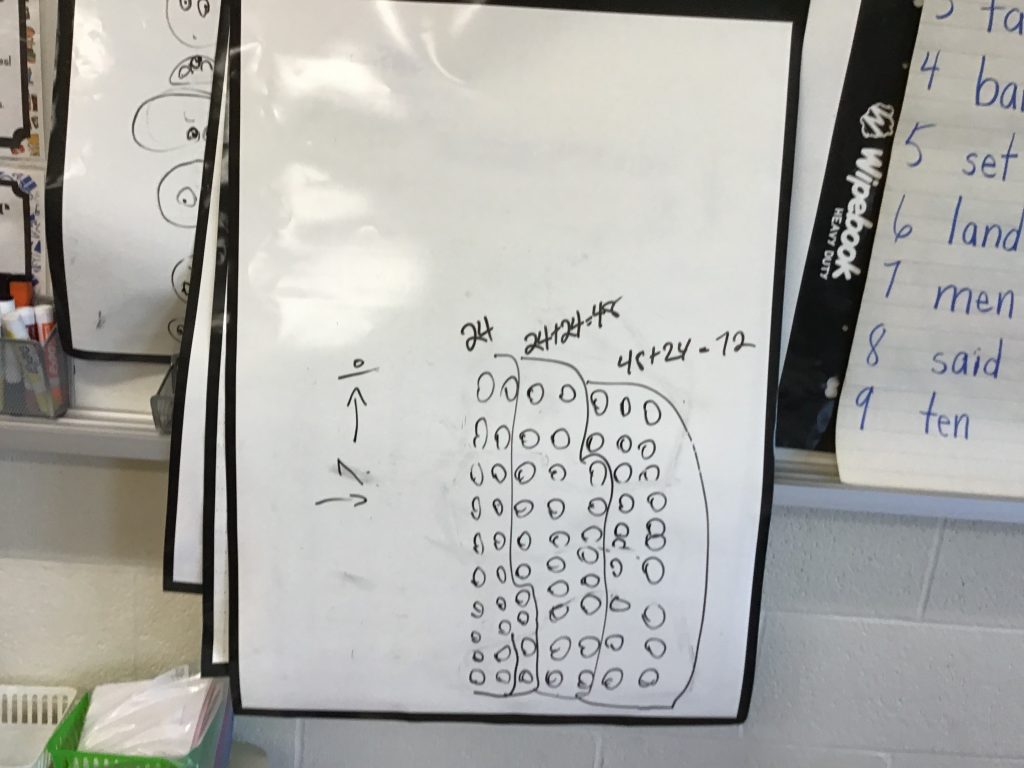 24
24+24=48
48+24=72
10
7
Wipebook
HEAVY DUTY
3
4
5 set
6 land
7 men
8 said
9 ten